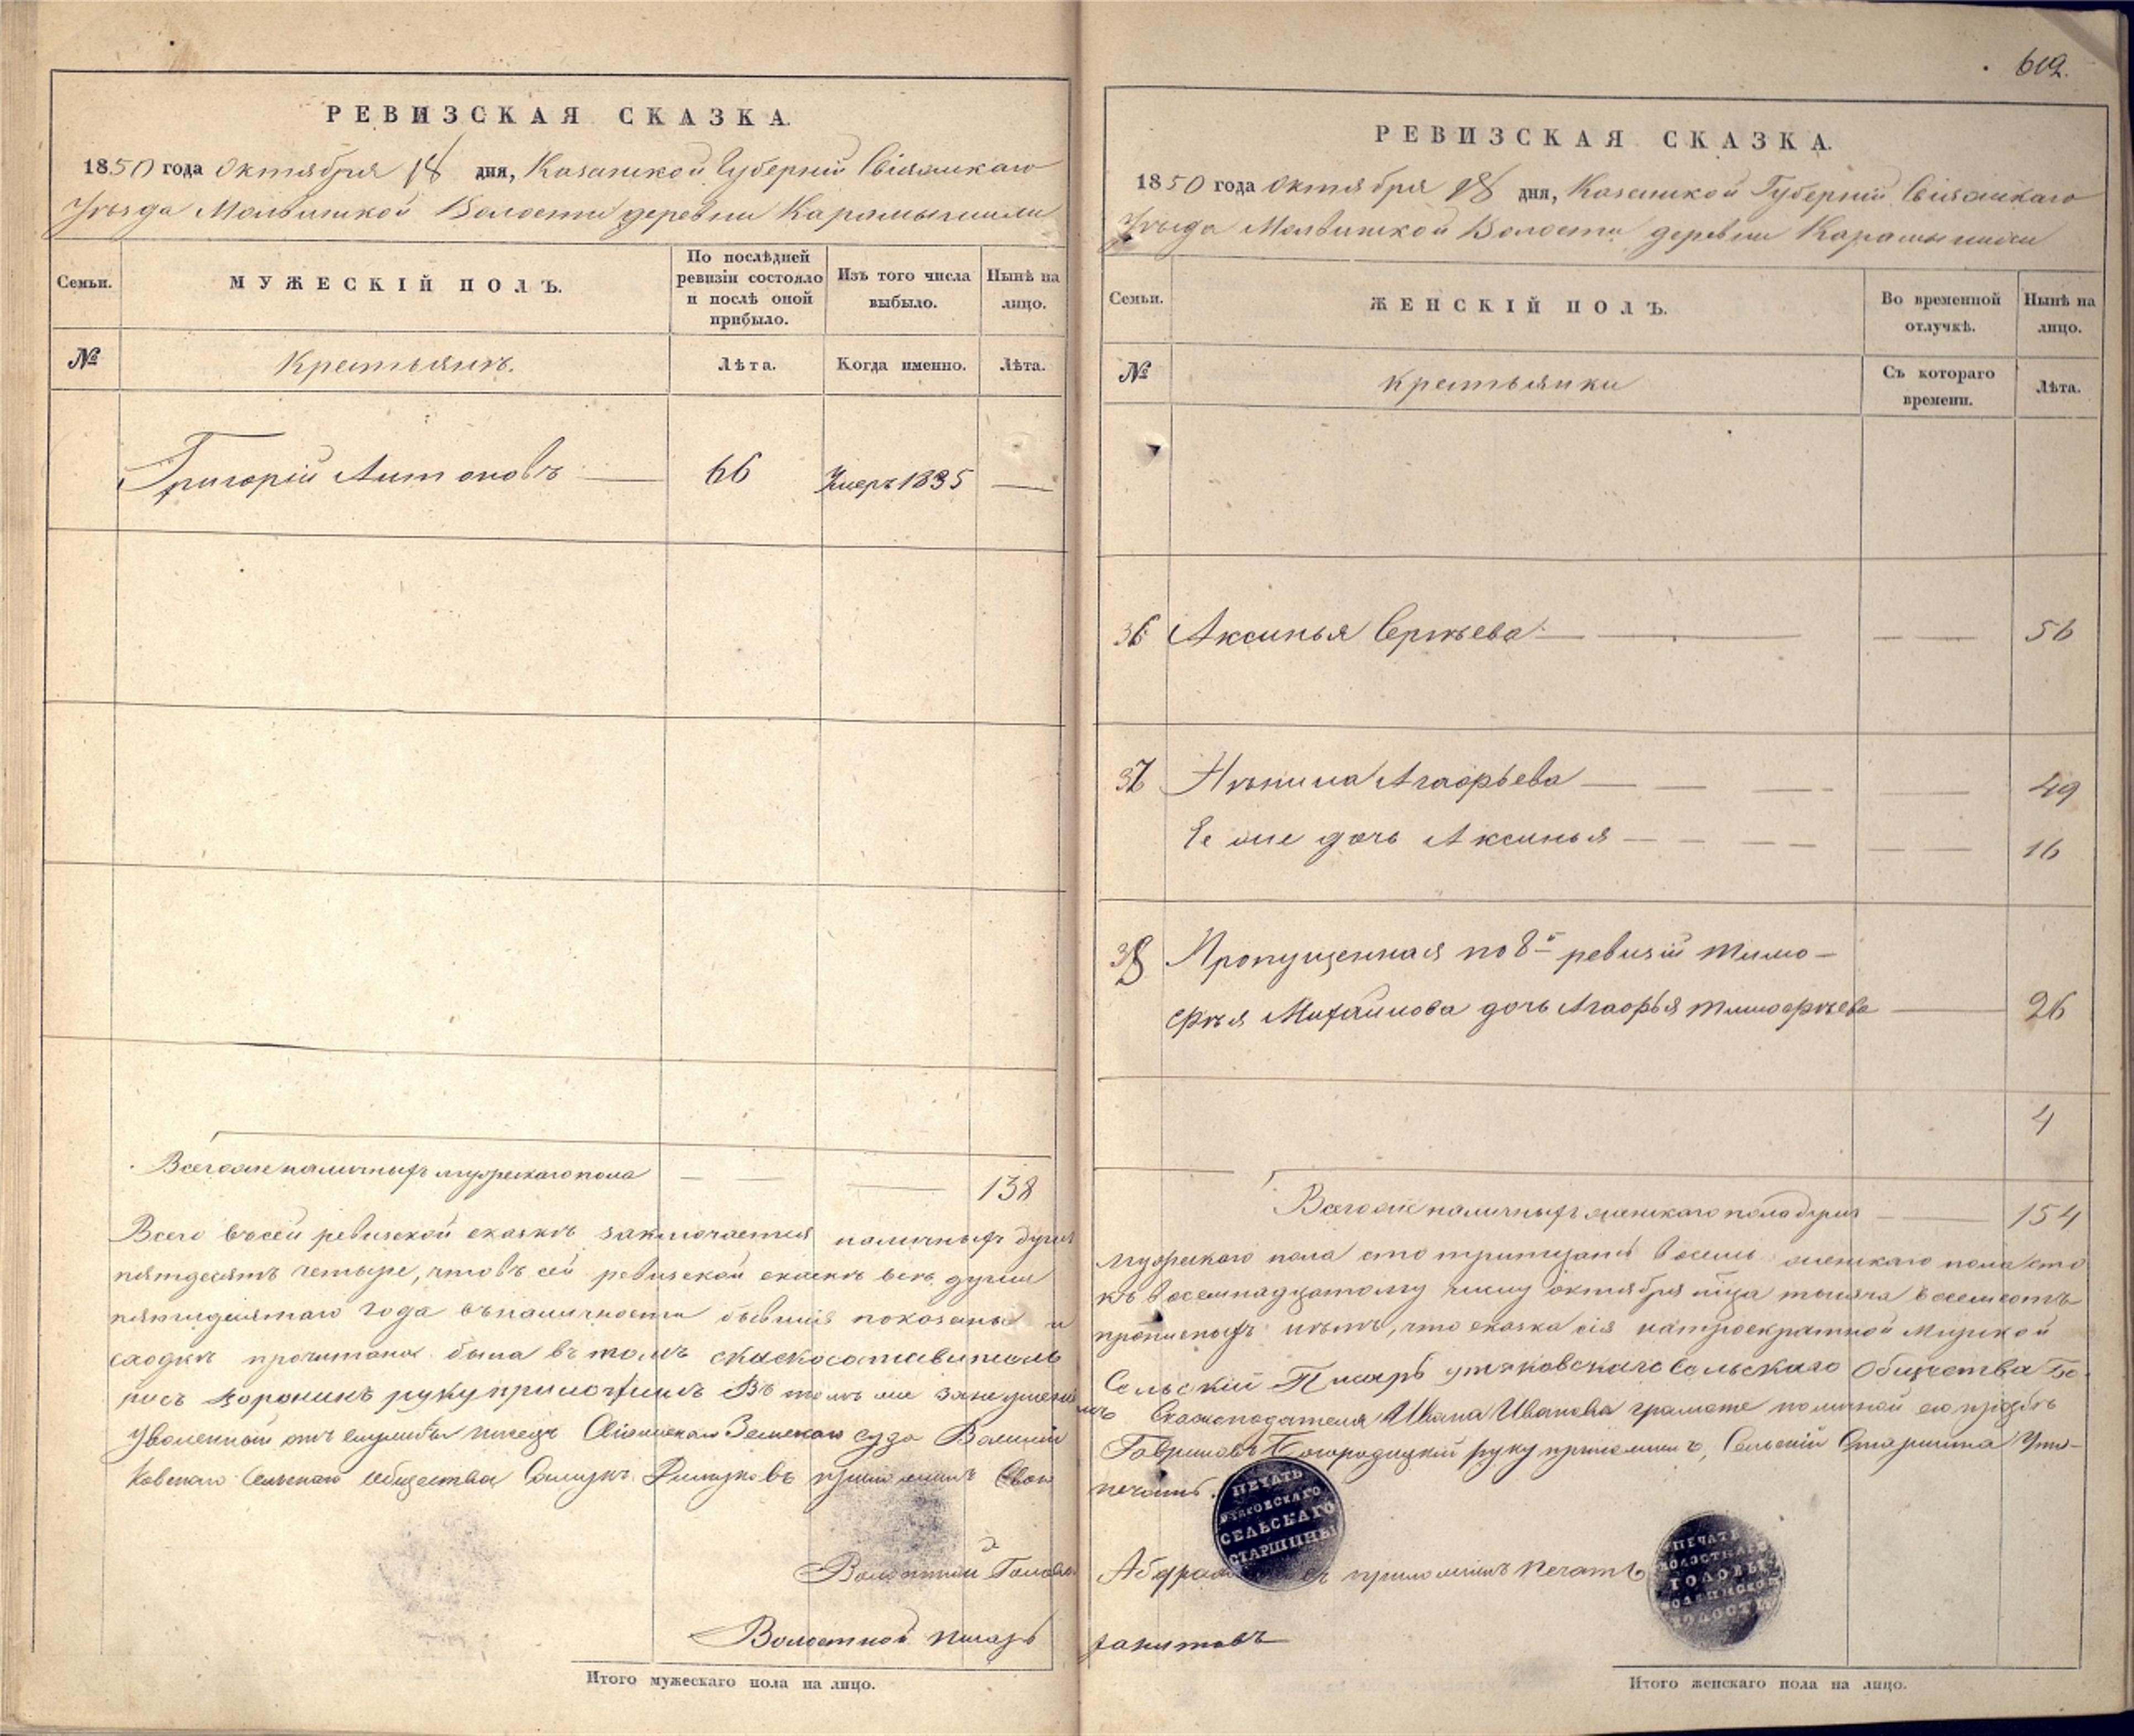 РЕВИЗСКАЯ СКАЗКА.
1850 года Октября 18 дня, Казанской Губерніи Свіяжскаго
Уѣзда Молвинской Волости деревни Карамышихи
Семьи.
МУЖЕСКІЙ ПОЛЪ.
По послѣдней ревизіи состояло и послѣ оной прибыло.
Изъ того числа выбыло.
Нынѣ на лицо.
№
Крестьянъ.
Лѣта.
Когда именно.
Лѣта.
Григорій Антоновъ — 66 Умеръ 1835 —
Всего же наличныхъ мужескаго пола — — — 138
Всего въ сей ревизской сказкѣ заключается наличныхъ душъ
пятдесятъ четыре, что въ сей ревизской сказкѣ всѣ души
пятидесятаго года въ наличности бывшія показаны и
сходкѣ прочитана была въ томъ
руку приложилъ Въ томъ же
Уволенный отъ службы писецъ Свіяжскаго Земскаго суда
ковскаго Сельскаго Общества приложилъ свою
Волостной Голова
Волостной писарь
Итого мужескаго пола на лицо.
612.
РЕВИЗСКАЯ СКАЗКА.
1850 года Октября 18 дня, Казанской Губерніи Свіяжскаго
Уѣзда Молвинской Волости деревни Карамышихи
Семьи.
ЖЕНСКІЙ ПОЛЪ.
Во временной отлучкѣ.
Нынѣ на лицо.
№
Крестьянки
Съ котораго времени.
Лѣта.
36 Аксинья Сергѣева — — — — 56
37 Агафьева — — — — 49
Ее же дочь Аксинья — — — — 16
38 Пропущенная по 8й ревизіи Тимо-
фѣя Михайлова дочь Агафья Тимофѣева — 26
4
Всего же наличныхъ женскаго пола душъ — — 154
мужескаго пола сто тритцать восемь женскаго пола сто
къ восемнадцатому числу октября мѣца тысяча восемсотъ
прописныхъ нѣтъ, что сказка сія на троекратной Мирской
Сельскій Писарь утяковскаго Сельскаго Общества
Сказкоподателя Ивана Иванова грамоте по личной его прозьбѣ
Гавриловъ Богородицкій руку приложилъ, Сельскій Старшина Утя-
печать.
ПЕЧАТЬ
СЕЛЬСКАГО
СТАРШИНЫ
приложилъ печать
ПЕЧАТЬ
ВОЛОСТНАГО
ГОЛОВЫ
ВОЛОСТИ
Итого женскаго пола на лицо.